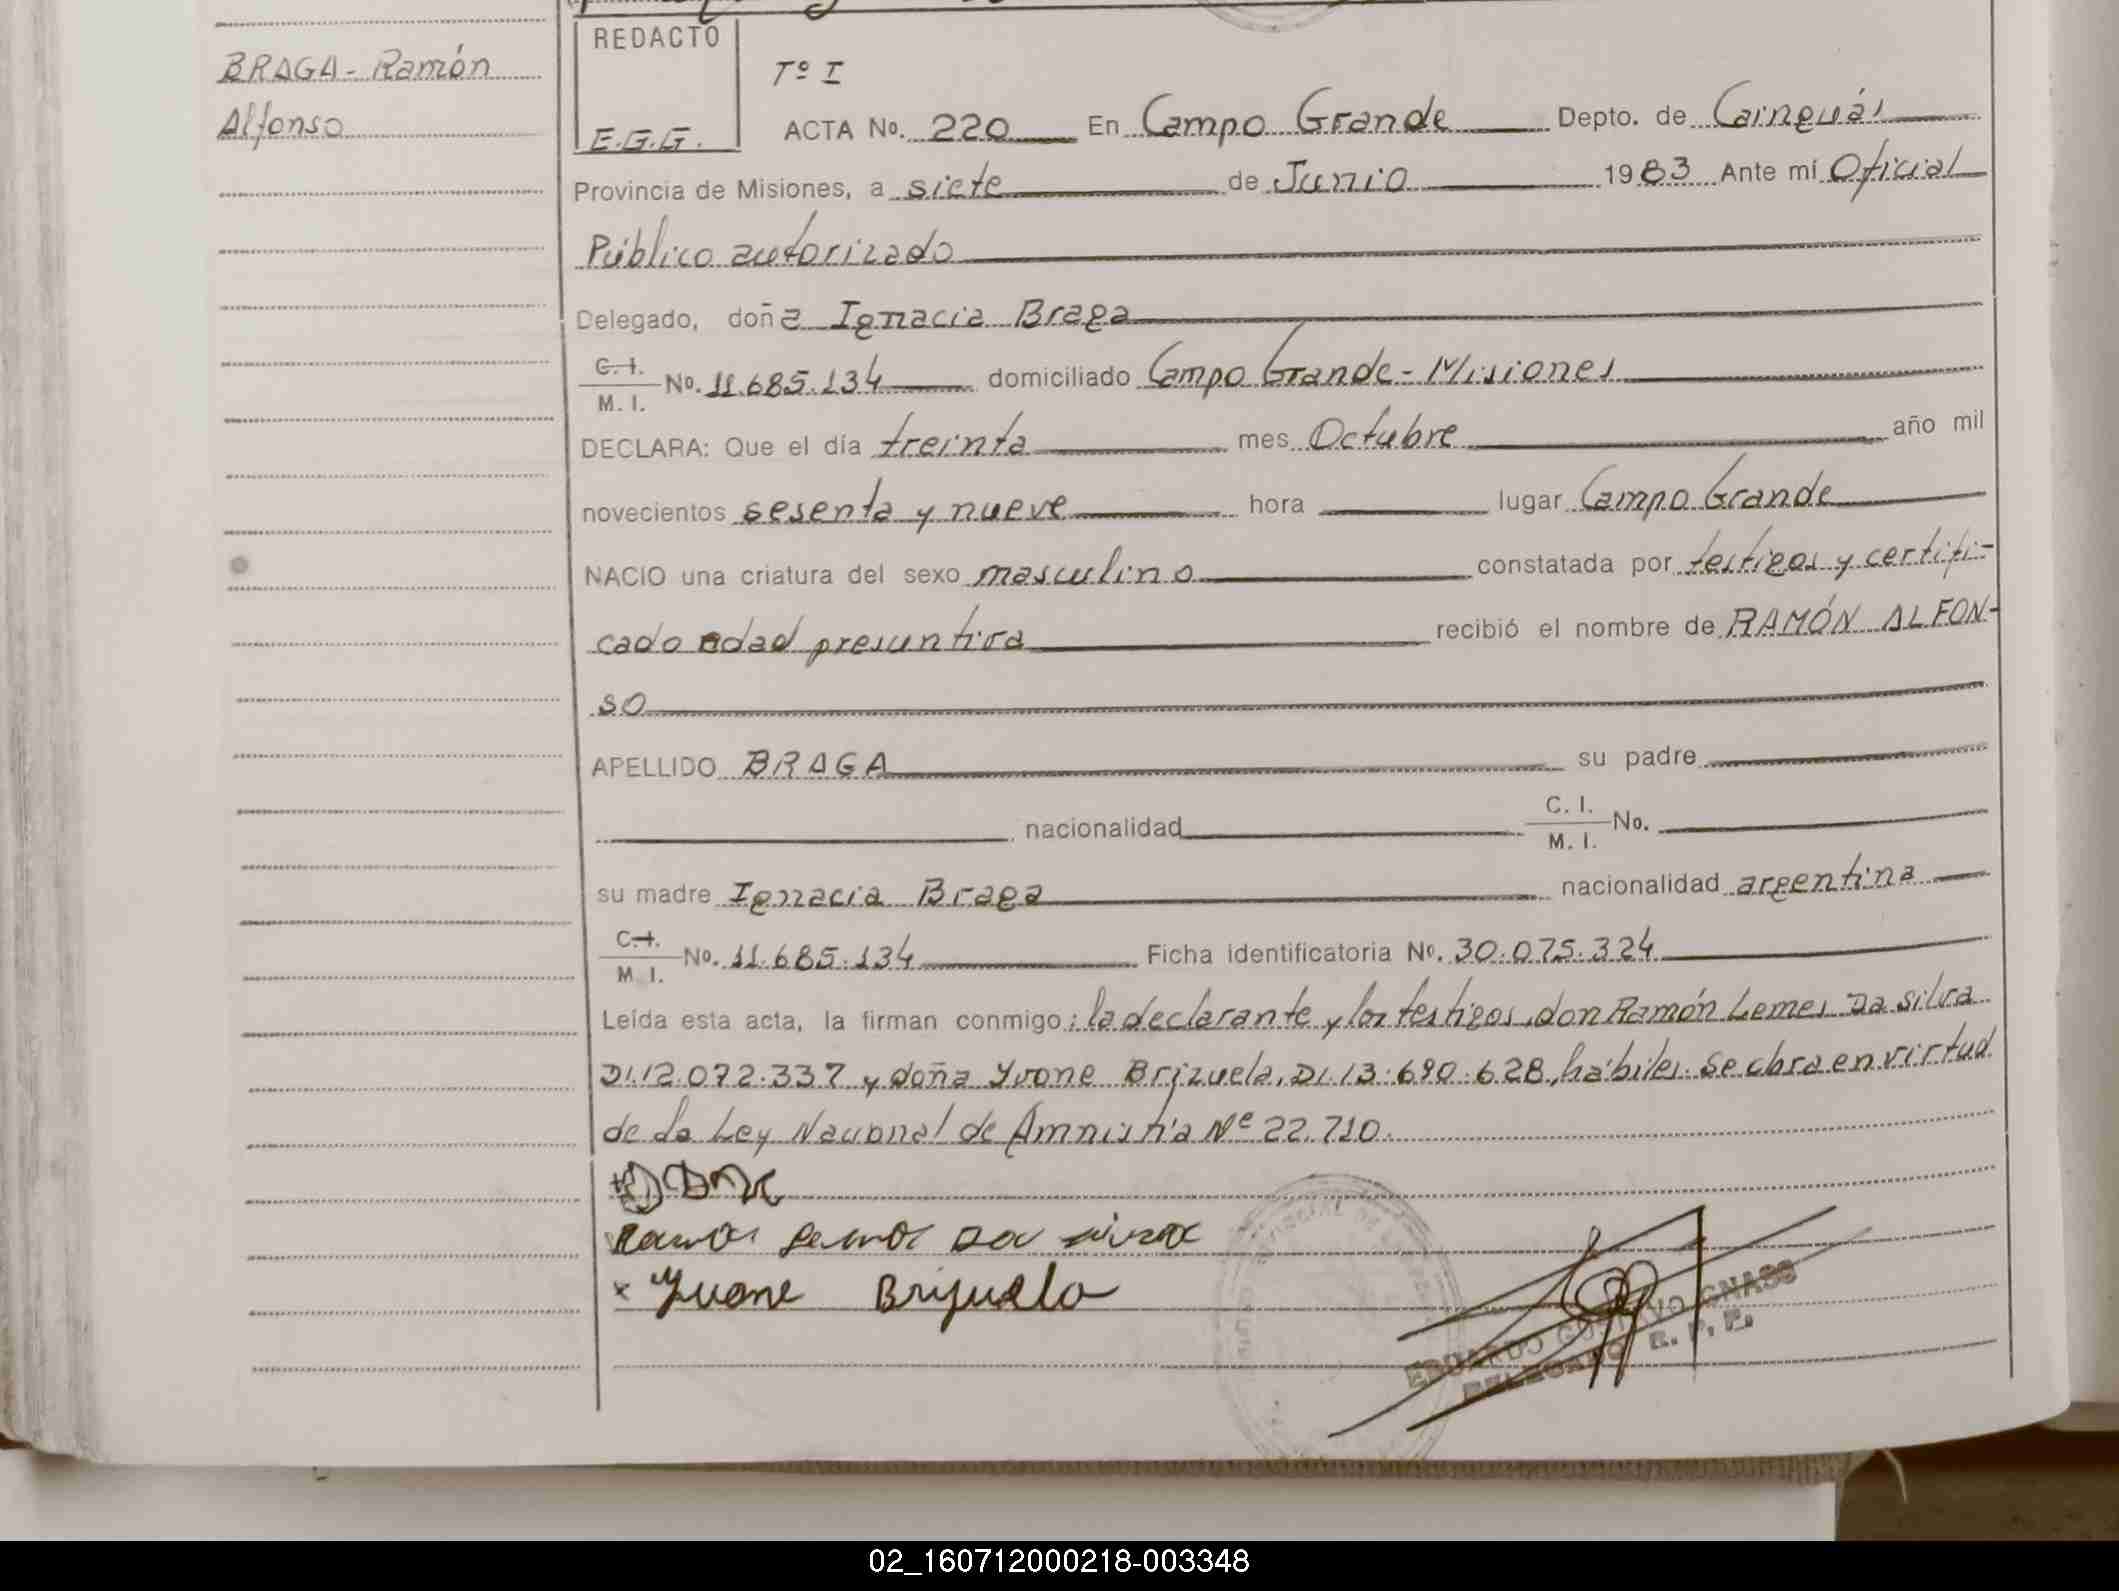 BRAGA - Ramón
Alfonso
REDACTO
E.G.G.
Tº I
ACTA No. 220 En Campo Grande Depto. de Cainguás
Provincia de Misiones, a siete de Junio 1983 Ante mí Oficial
Público autorizado
Delegado, doña Ignacia Braga
C. I. / M. I. No. 11.685.134 domiciliado Campo Grande - Misiones
DECLARA: Que el día treinta mes Octubre año mil
novecientos sesenta y nueve hora lugar Campo Grande
NACIO una criatura del sexo masculino constatada por testigos y certifi-
cado edad presuntiva recibió el nombre de RAMÓN ALFON-
SO
APELLIDO BRAGA su padre
nacionalidad C. I. / M. I. No.
su madre Ignacia Braga nacionalidad argentina
C. I. / M. I. No. 11.685.134 Ficha identificatoria No. 30.075.324
Leída esta acta, la firman conmigo: la declarante y los testigos, don Ramón Lemes Da Silva
DI.12.072.337 y doña Yvone Brizuela, DI.13.690.628, hábiles. Se labra en virtud
de la Ley Nacional de Amnistía Nº 22.710.
Yvone Brizuela
EDUARDO GUSTAVO GNASS
DELEGADO R. P. P.
02_160712000218-003348